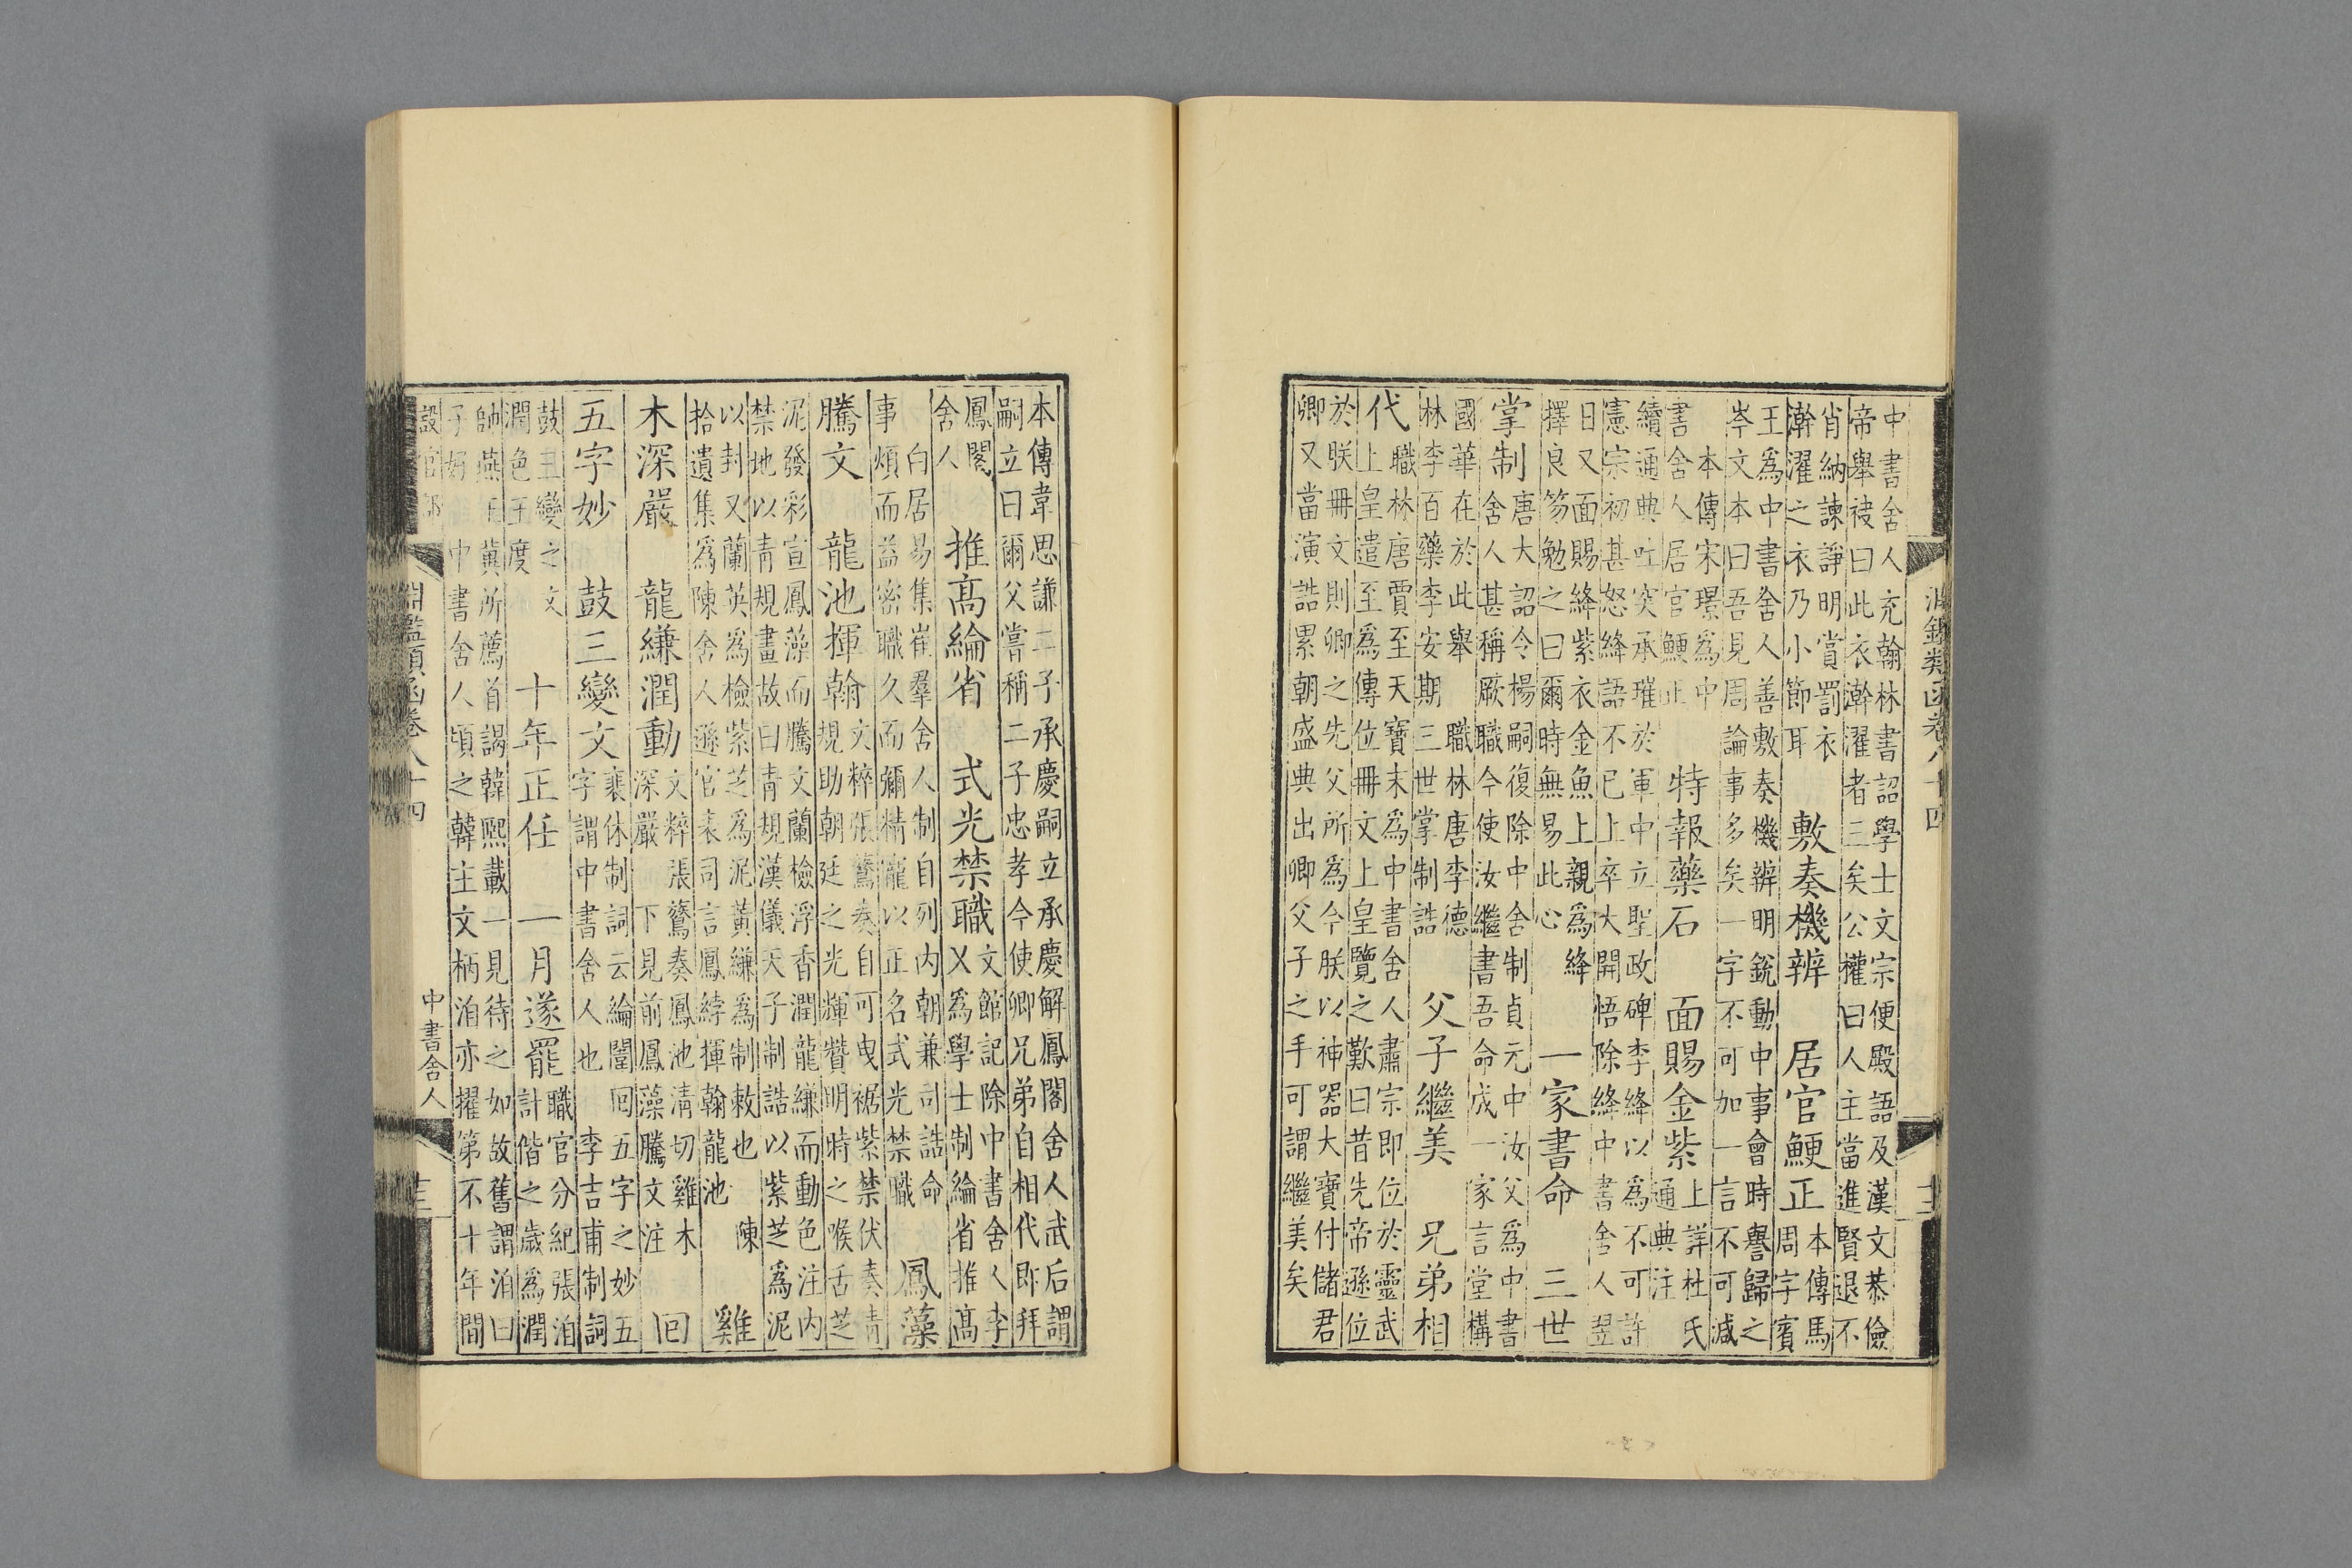 中書舍人充翰林書詔學士文宗便殿語及漢文恭儉
帝舉袂曰此衣澣濯者三矣公權曰人主當進賢退不
肖納諫諍明賞罰衣
澣濯之衣乃小節耳
敷奏機辨
居官鯁正
本傳馬
周字賓
王爲中書舍人善敷奏機辨明銳動中事會時譽歸之
岑文本曰吾見周論事多矣一字不可加一言不可減
本傳宋璟爲中
書舍人居官鯁正
特報藥石
面賜金紫
上詳杜氏
通典注
續通典吐突承璀於軍中立聖政碑李絳以爲不可許
憲宗初甚怒絳語不已上卒大開悟除絳中書舍人翌
日又面賜絳紫衣金魚上親爲絳
擇良笏勉之曰爾時無易此心
一家書命
三世
掌制
唐大詔令楊嗣復除中舍制貞元中汝父爲中書
舍人甚稱厥職今使汝繼書吾命成一家言堂構
國華在於此舉
職林唐李德
林李百藥李安期三世掌制誥
父子繼美
兄弟相
代
職林唐賈至天寶末爲中書舍人肅宗即位於靈武
上皇遣至爲傳位冊文上皇覽之歎曰昔先帝遜位
於朕冊文則卿之先父所爲今朕以神器大寶付儲君
卿又當演誥累朝盛典出卿父子之手可謂繼美矣
本傳韋思謙二子承慶嗣立承慶解鳳閣舍人武后謂
嗣立曰爾父嘗稱二子忠孝今使卿兄弟自相代即拜
鳳閣
舍人
推高綸省
式光禁職
文館記除中書舍人李
乂爲學士制綸省推高
白居易集崔羣舍人制自列內朝兼司誥命
事煩而益密職久而彌精寵以正名式光禁職
鳳藻
騰文
龍池揮翰
文粹張鷟奏自可曳裾紫禁伏奏青
規助朝廷之光輝贊明時之喉舌芝
泥發彩宣鳳藻而騰文蘭檢浮香潤龍縑而動色注內
禁地以青規畫故曰青規漢儀天子制誥以紫芝爲泥
以封又蘭英爲檢紫芝爲泥黃縑爲制敕也
陳
拾遺集爲陳舍人遜官表司言鳳綍揮翰龍池
雞
木深嚴
龍縑潤動
文粹張鷟奏鳳池清切雞木
深嚴下見前鳳藻騰文注
回
五字妙
鼓三變文
襄休制詞云綸闈回五字之妙五
字謂中書舍人也李吉甫制詞
鼓三變之文
潤色王度
十年正任
一月遂罷
職官分紀張洎
計偕之歲爲潤
帥燕王冀所薦首謁韓熙載一見待之如故舊謂洎曰
子好中書舍人頃之韓主文柄洎亦擢第不十年間
淵鑑類函卷八十四
設官部
中書舍人
十三